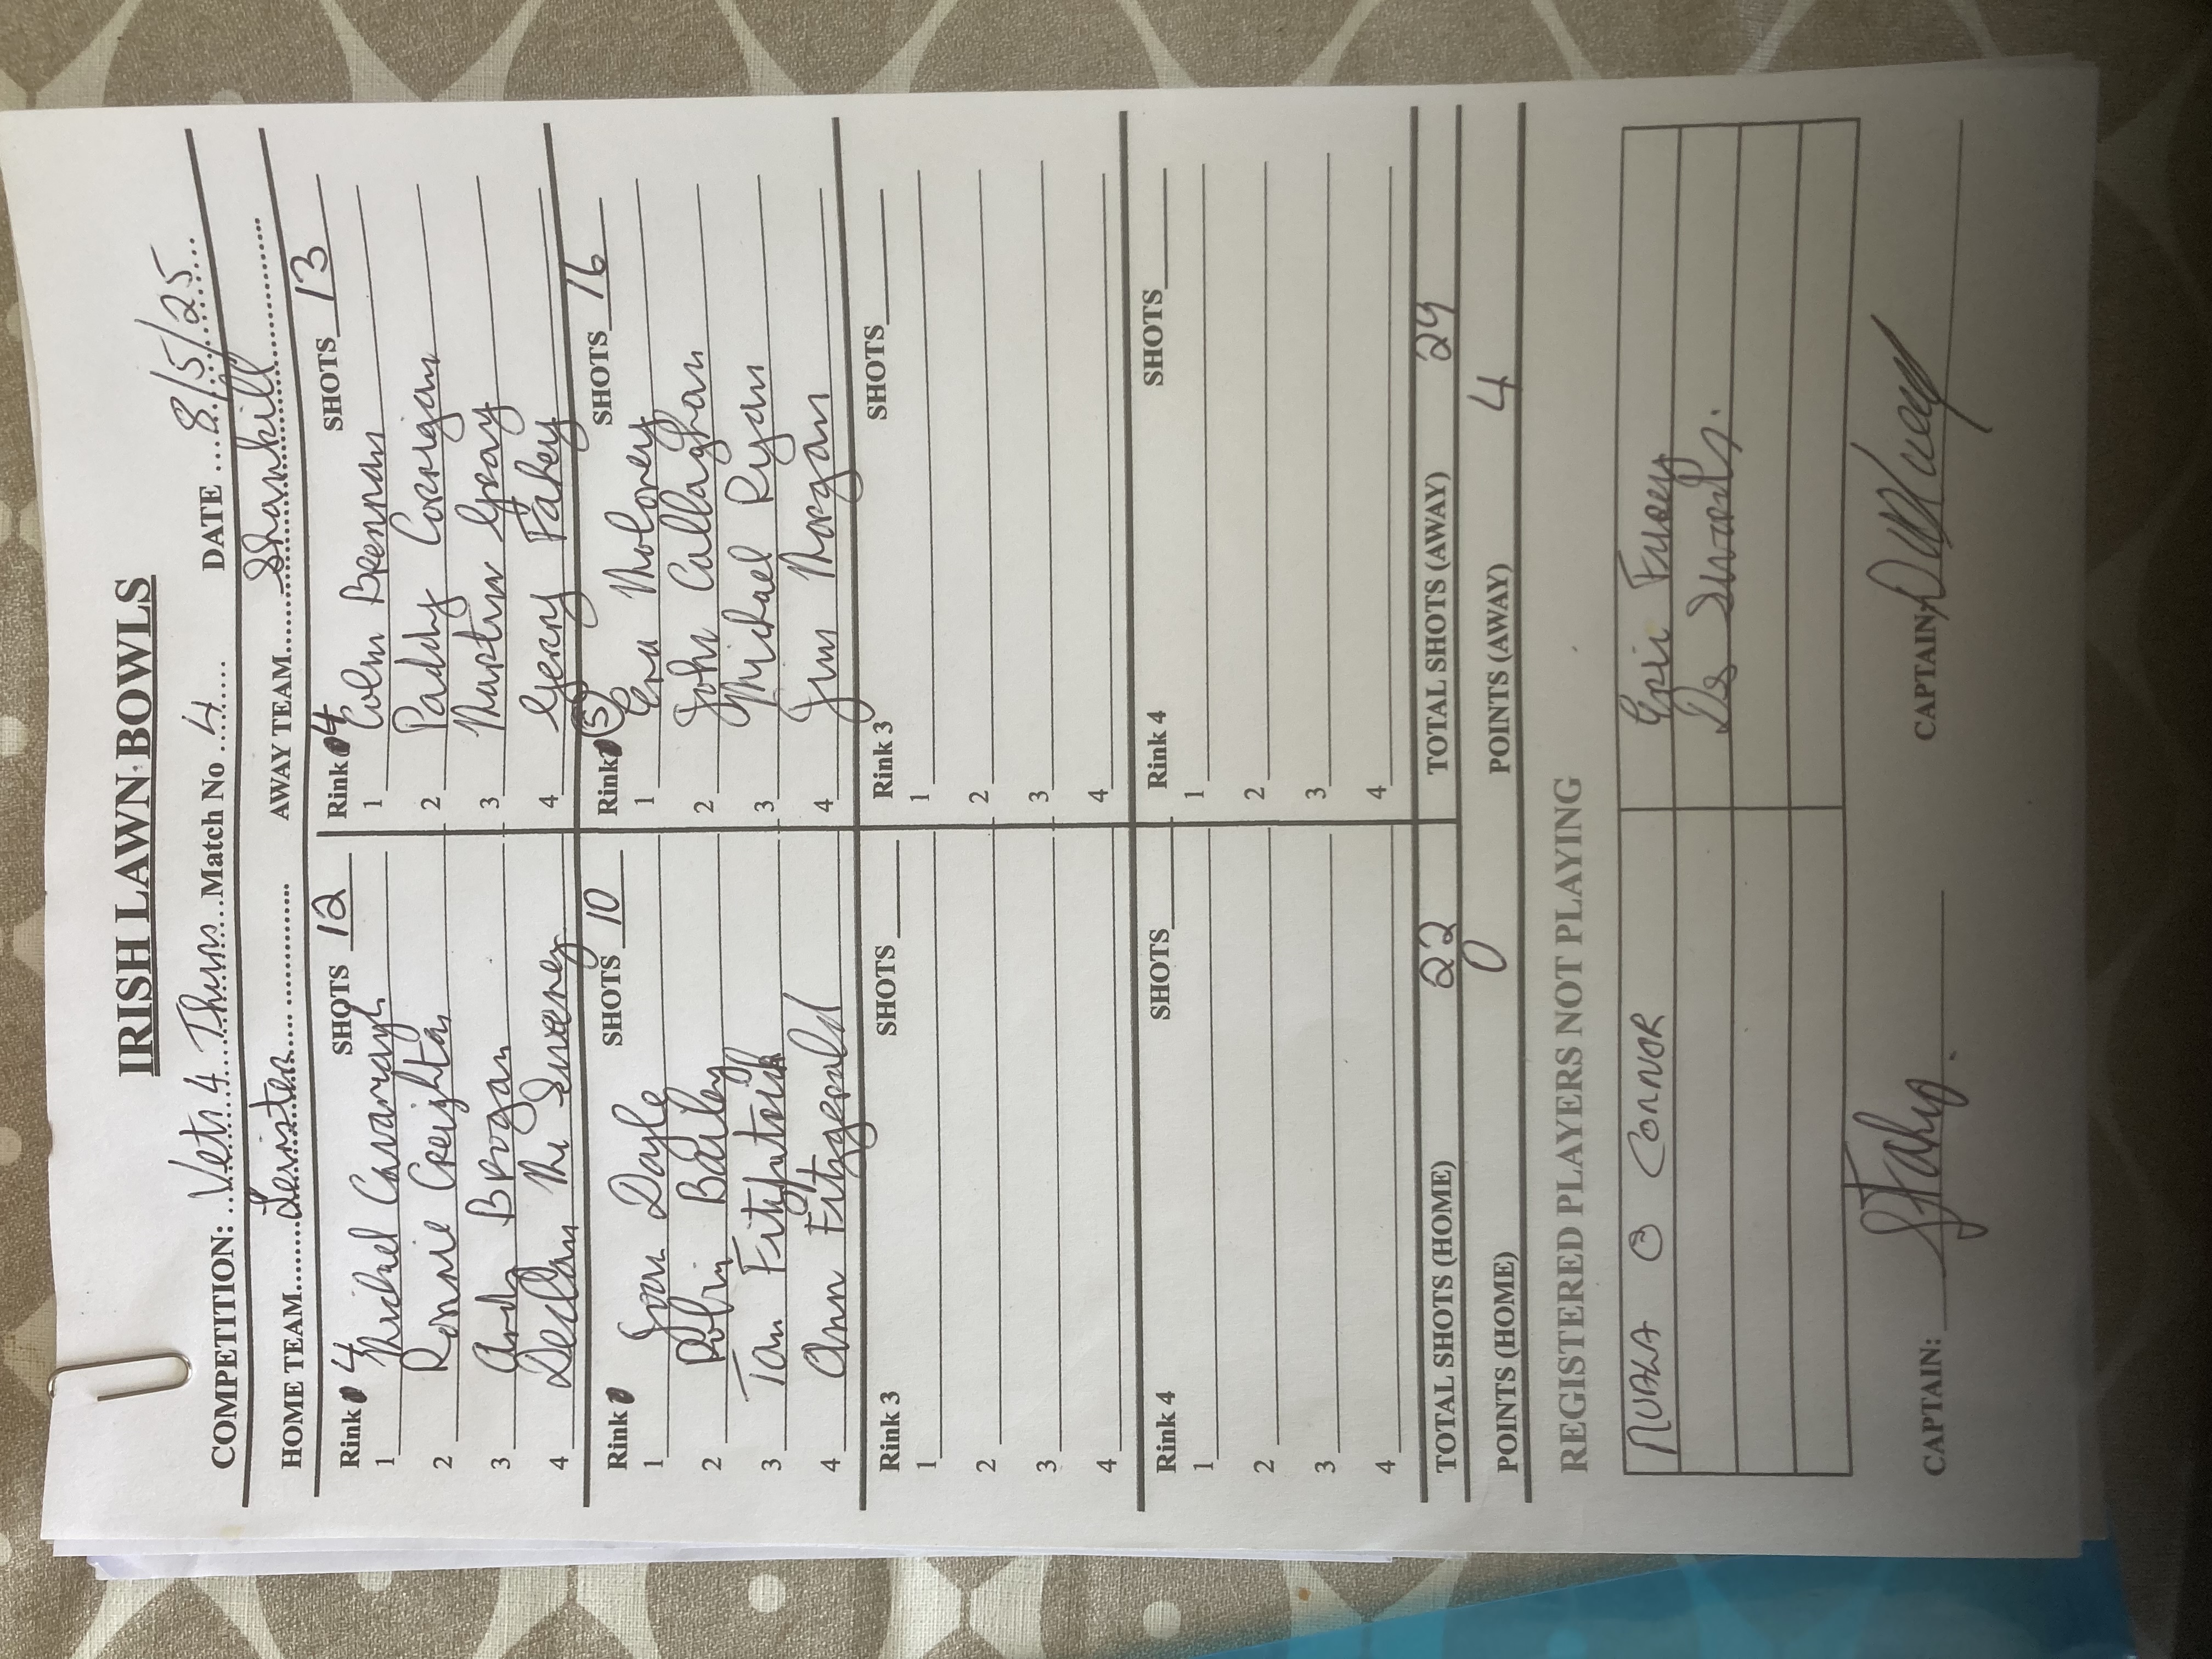 IRISH LAWN BOWLS
COMPETITION: Vets 4 Thurs Match No 4 DATE 8/5/25
HOME TEAM Leinster AWAY TEAM Shankill
Rink 4 SHOTS 12 Rink 4 SHOTS 13
1 Michael Cavanagh 1 Colm Brennan
2 Ronnie Creighton 2 Paddy Corrigan
3 Andy Brogan 3 Martin Gray
4 Declan Mc Sweeney 4 Gerry Fahey
Rink SHOTS 10 Rink 5 SHOTS 16
1 Joan Doyle 1 Ena Moloney
2 Robin Bailey 2 John Callaghan
3 Ian Fitzpatrick 3 Michael Ryan
4 Ann Fitzgerald 4 Jim Morgan
Rink 3 SHOTS Rink 3 SHOTS
1 1
2 2
3 3
4 4
Rink 4 SHOTS Rink 4 SHOTS
1 1
2 2
3 3
4 4
TOTAL SHOTS (HOME) 22 TOTAL SHOTS (AWAY) 29
POINTS (HOME) 0 POINTS (AWAY) 4
REGISTERED PLAYERS NOT PLAYING
NUALA O CONNOR Eric Furey
Des Swords.
CAPTAIN: CAPTAIN: